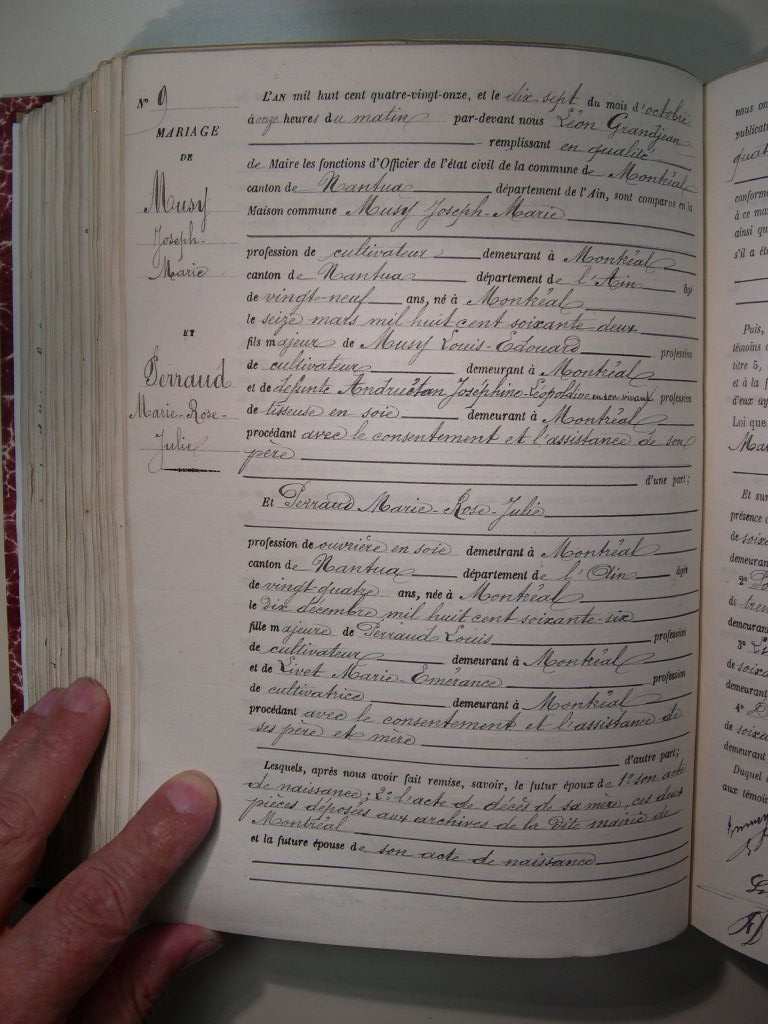 N° 9
MARIAGE
DE
Musy
Joseph-
Marie
ET
Perraud
Marie-Rose-
Julie
L'AN mil huit cent quatre-vingt-onze, et le dix sept du mois d'octobre
à onze heures du matin par-devant nous Léon Grandjean
remplissant en qualité
de Maire les fonctions d'Officier de l'état civil de la commune de Montréal
canton de Nantua département de l'Ain, sont comparus en la
Maison commune Musy Joseph-Marie
profession de cultivateur demeurant à Montréal
canton de Nantua département de l'Ain âgé
de vingt-neuf ans, né à Montréal
le seize mars mil huit cent soixante deux
fils majeur de Musy Louis-Edouard profession
de cultivateur demeurant à Montréal
et de défunte Andruétan Joséphine-Léopoldine en son vivant profession
de tisseuse en soie demeurant à Montréal
procédant avec le consentement et l'assistance de son
père
d'une part;
Et Perraud Marie-Rose-Julie
profession de ouvrière en soie demeurant à Montréal
canton de Nantua département de l'Ain âgée
de vingt-quatre ans, née à Montréal
le dix décembre mil huit cent soixante-six
fille majeure de Perraud Louis profession
de cultivateur demeurant à Montréal
et de Livet Marie-Emérance profession
de cultivatrice demeurant à Montréal
procédant avec le consentement et l'assistance de
ses père et mère
d'autre part;
Lesquels, après nous avoir fait remise, savoir, le futur époux de 1° son acte
de naissance; 2° l'acte de décès de sa mère, ces deux
pièces déposées aux archives de la dite mairie de
Montréal
et la future épouse de son acte de naissance
nous on
publicat
quat
conforme
à ce ma
ainsi qu
s'il a ét
Puis,
témoins
titre 5,
et à la f
d'eux
Loi que
Ma
Et sur
présence
de soix
demeurant
2°
de tren
demeurant
3°
de soixa
demeurant
4° D
de soixa
demeurant
Duquel
aux témoi